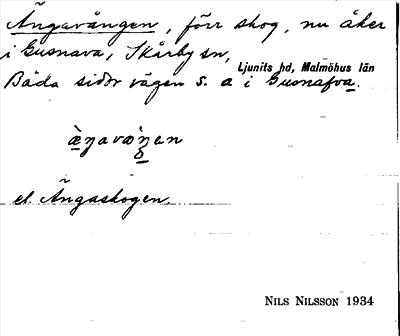 Ängavången, förr skog, nu åker
i Gusnava, Skårby sn,
Ljunits hd, Malmöhus län
Båda sidor vägen s. a i Gusnafva.
el. Ängaskogen.
NILS NILSSON 1934